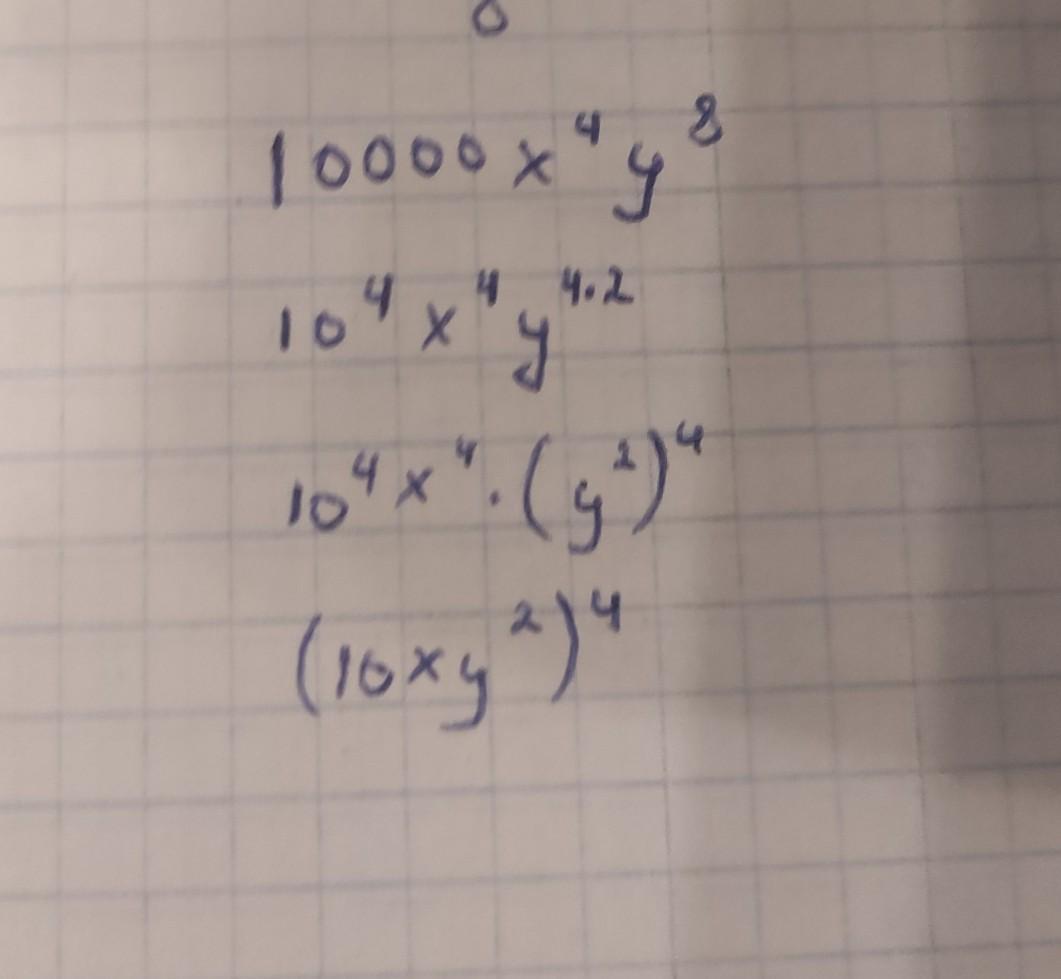 10000x⁴y⁸
10⁴x⁴y⁴·²
10⁴x⁴·(y²)⁴
(10xy²)⁴